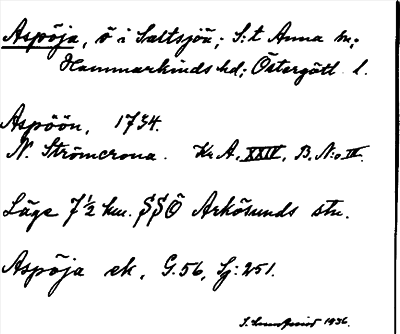 Aspöja, ö i Saltsjön; S:t Anna sn;
Hammarkinds hd; Östergötl. l.
Aspöön, 1734.
N. Strömcrona. Kr A, XXIV, B. N:o III.
Läge 7½ km. SSÖ Arkösunds stn.
Aspöja ek, G. 56, Sj: 251.
1936.